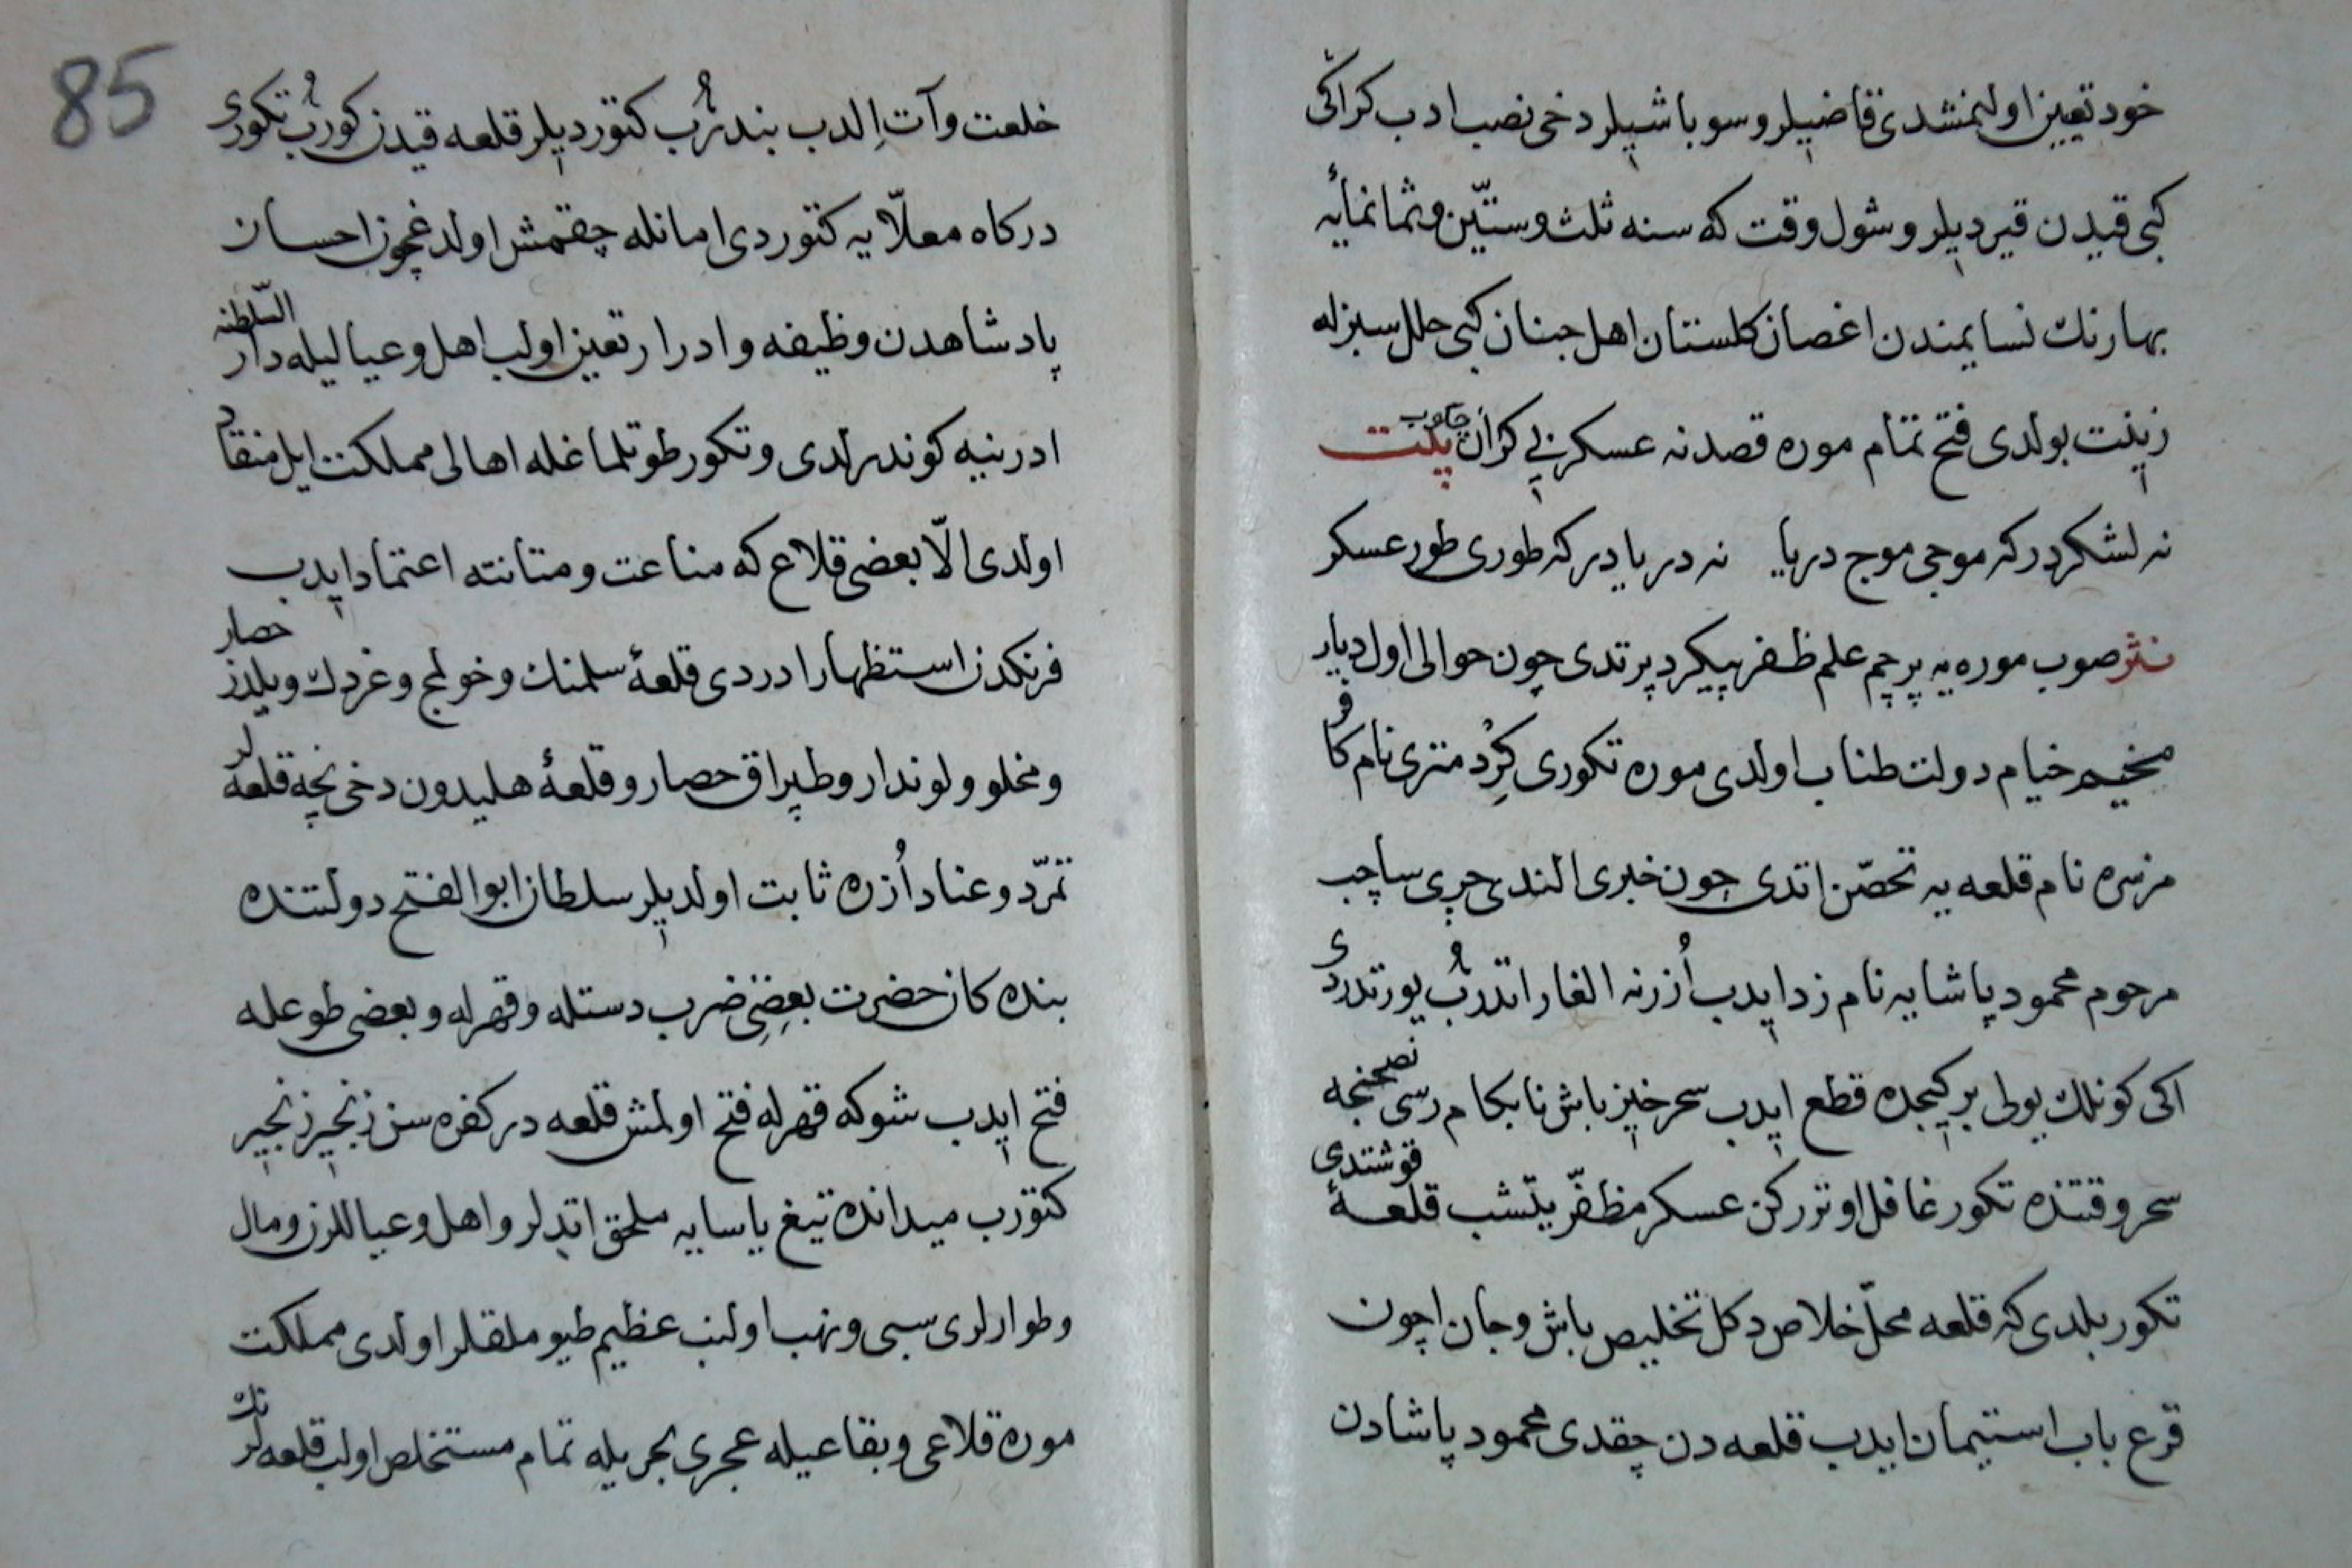 خود تعیین اولنمشدی قاضیلر و سوباشیلر دخی نصب ادب کراکی
کبی قیدن قیردیلر و شول وقت که سنه ثلث و ستّین و ثمانمأیه
بهارنك نسایمندن اغصان کلستان اهل جنان کبی حلل سبزله
زینت بولدی فتح تمام موره قصدنه عسکر بی کران چاوب بیت
نه لشکردر که موجی موج دریا نه دریادر که طوری طور عسکر
نثر صوب موره یه پرچم علم ظفر پیکر دپرتدی چون حوالی اول دیار
مخیم خیام دولت طناب اولدی موره تکوری کرد متری نام کافر
مزسره نام قلعه یه تحصّن اتدی چون خبری الندی چری ساچب
مرحوم محمود پاشایه نام زد ایدب اُزرنه الغار اتدرُب یورتدردی
اکی کونلك یولی بر کیجده قطع ایدب سحرخیز باش نابکام رسی نصحنجه
سحر وقتنده تکور غافل اوتررکن عسکر مظفّر یتّشب قلعهٔ قوشتدی
تکور بلدی که قلعه محلّ خلاص دکل تخلیص باش و جان اچون
قرع باب استیمان ایدب قلعه دن چقدی محمود پاشادن
85
خلعت و آت اِلدب بندرُب کتوردیلر قلعه قیدن کورُب تکوری
درکاه معلّایه کتوردی امانله چقمش اولدغچون احسان
پادشاهدن وظیفه و ادرار تعین اولب اهل و عیالیله دار السّلطنه
ادرنیه کوندرلدی و تکور طوتلماغله اهالی مملکت ایل منقاد
اولدی الّا بعضی قلاع که مناعت و متانته اعتماد ایدب
فرنکدن استظهار ادردی قلعهٔ سلمنك و خولمج و غردك و یلدز حصار
و مخلو و لوندار و طپراق حصار و قلعهٔ هلیدون دخی نچه قلعه لر
تمرّد و عناد اُزره ثابت اولدیلر سلطان ابو الفتح دولتنده
بندەکان حضرت بعضِی ضرب دستله و قهرله و بعضی طوعله
فتح ایدب شوکه قهرله فتح اولمش قلعه در کفره سن زنجیر زنجیر
کتورب میدانده تیغ یاسایه ملحق اتدلر و اهل و عیاللرن و مال
و طوارلری سبی و نهب اولنب عظیم طیوملقلر اولدی مملکت
موره قلاعی و بقاعیله عجری بجریله تمام مستخلص اولب قلعه لرنك